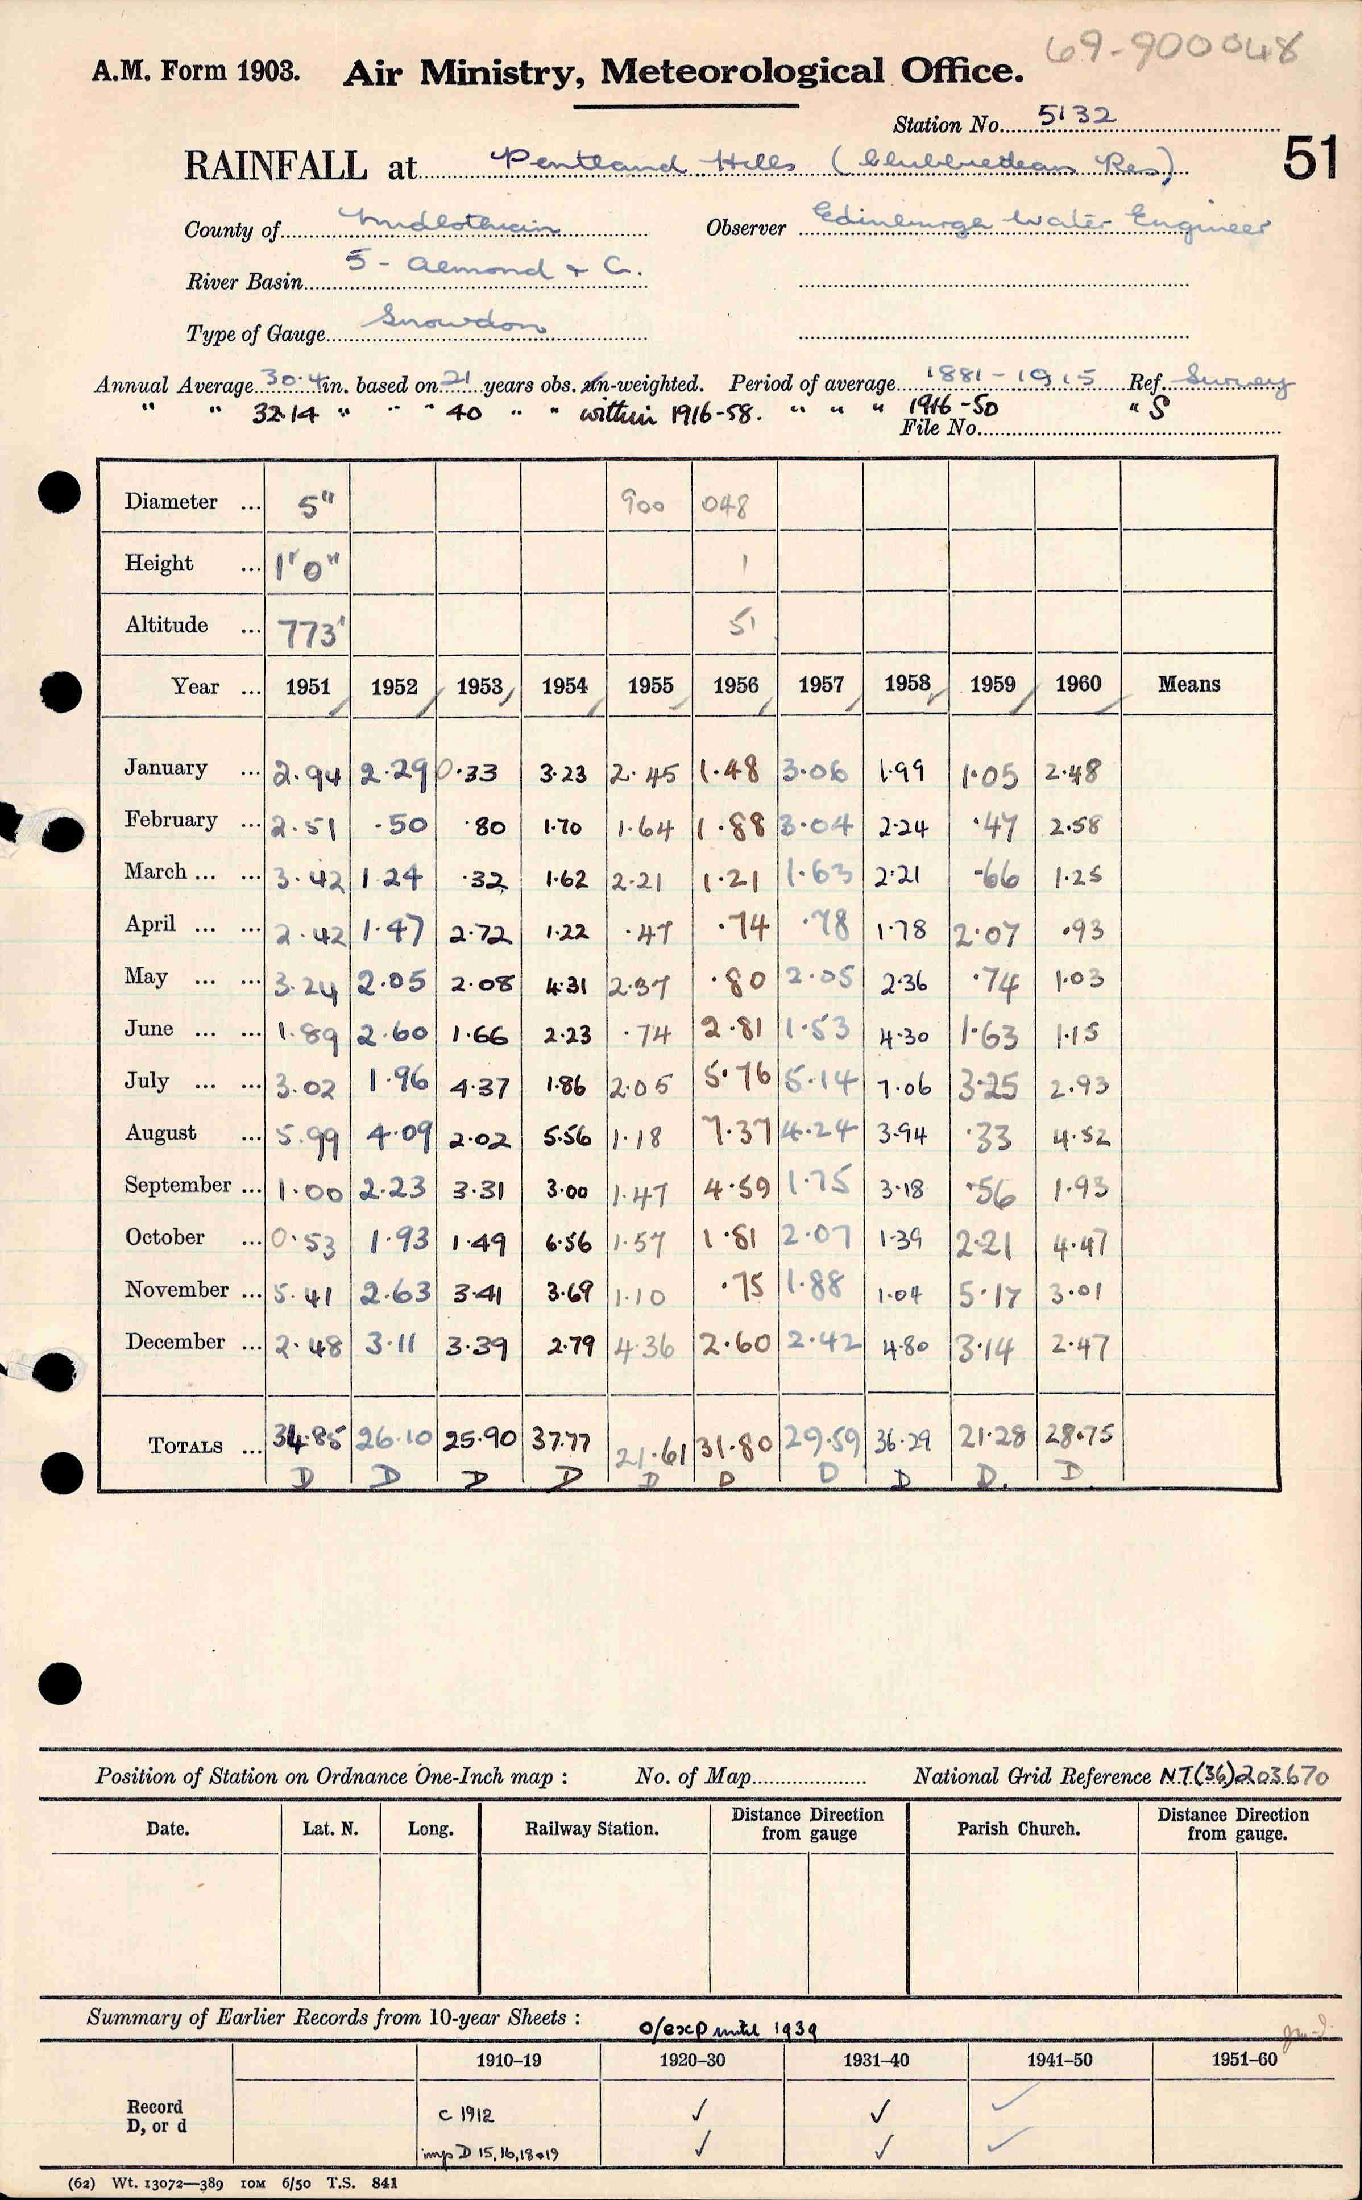 69-900048
A.M. Form 1903. Air Ministry, Meteorological Office.
Station No. 5132
RAINFALL at Pentland Hills (Clubbiedean Res) 51
County of Midlothian Observer Edinburgh Water Engineer
River Basin 5 - Almond & C.
Type of Gauge Snowdon
Annual Average 30.4 in. based on 21 years obs. un-weighted. Period of average 1881-1915 Ref. Survey
" " 32.14 " " " 40 " " within 1916-58. " " " 1916-50 " S
File No.
Diameter ... 5" 900 048
Height ... 1'0" 1
Altitude ... 773' 51
Year ... 1951 1952 1953 1954 1955 1956 1957 1958 1959 1960 Means
January ... 2.94 2.29 0.33 3.23 2.45 1.48 3.06 1.99 1.05 2.48
February ... 2.51 .50 .80 1.70 1.64 1.88 3.04 2.24 .47 2.58
March ... ... 3.42 1.24 .32 1.62 2.21 1.21 1.63 2.21 .66 1.25
April ... ... 2.42 1.47 2.72 1.22 .47 .74 .78 1.78 2.07 .93
May ... ... 3.24 2.05 2.08 4.31 2.37 .80 2.05 2.36 .74 1.03
June ... ... 1.89 2.60 1.66 2.23 .74 2.81 1.53 4.30 1.63 1.15
July ... ... 3.02 1.96 4.37 1.86 2.05 5.76 5.14 7.06 3.25 2.93
August ... 5.99 4.09 2.02 5.56 1.18 7.37 4.24 3.94 .33 4.52
September ... 1.00 2.23 3.31 3.00 1.47 4.59 1.75 3.18 .56 1.93
October ... 0.53 1.93 1.49 6.56 1.57 1.81 2.07 1.39 2.21 4.47
November ... 5.41 2.63 3.41 3.69 1.10 .75 1.88 1.04 5.17 3.01
December ... 2.48 3.11 3.39 2.79 4.36 2.60 2.42 4.80 3.14 2.47
TOTALS ... 34.85 26.10 25.90 37.77 21.61 31.80 29.59 36.29 21.28 28.75
D D D D D D D D D. D.
Position of Station on Ordnance One-Inch map : No. of Map National Grid Reference NT(36)203670
Date. Lat. N. Long. Railway Station. Distance Direction from gauge Parish Church. Distance Direction from gauge.
Summary of Earlier Records from 10-year Sheets : o/exp until 1939
1910–19 1920–30 1931–40 1941–50 1951–60
Record c 1912 ✓ ✓ ✓
D, or d imp D 15, 16, 18+19 ✓ ✓ ✓
(62) Wt. 13072—389 10M 6/50 T.S. 841